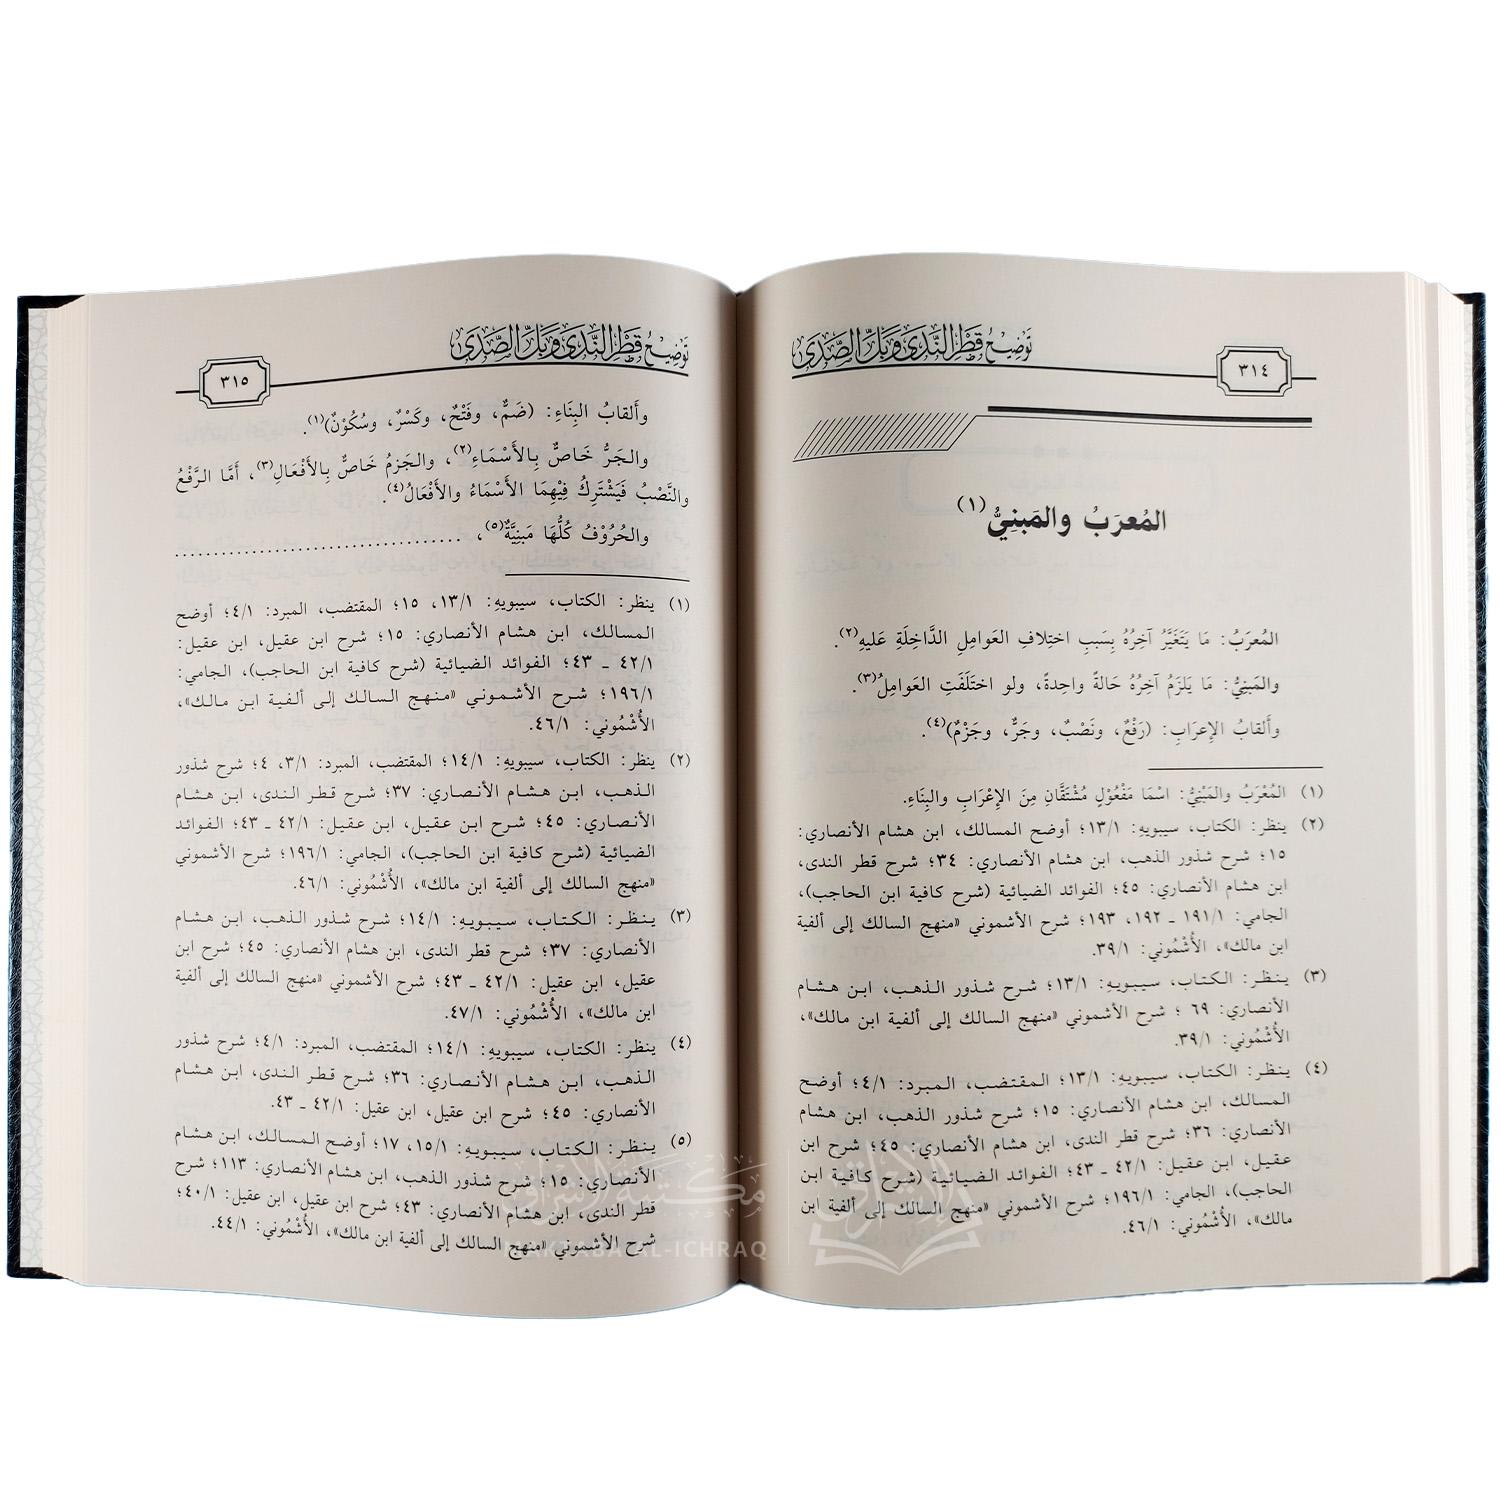 توضيح قطر الندى وبل الصدى
٣١٤
المُعرَبُ والمَبنِيُّ (١)
المُعرَبُ: مَا يَتَغَيَّرُ آخِرُهُ بِسَببِ اختِلافِ العَوامِلِ الدَّاخِلَةِ عَليهِ(٢).
والمَبنِيُّ: مَا يَلزَمُ آخِرُهُ حَالةً واحِدةً، ولو اختَلَفَتِ العَوامِلُ(٣).
وأَلقابُ الإِعرَابِ: (رَفْعٌ، ونَصْبٌ، وجَرٌّ، وجَزْمٌ)(٤).
(١) المُعْرَبُ والمَبْنِيُّ: اسْمَا مَفْعُوْلٍ مُشْتَقَّانِ مِنَ الإِعْرَابِ والبِنَاءِ.
(٢) ينظر: الكتاب، سيبويهِ: ١٣/١؛ أوضح المسالك، ابن هشام الأنصاري:
١٥؛ شرح شذور الذهب، ابن هشام الأنصاري: ٣٤؛ شرح قطر الندى،
ابن هشام الأنصاري: ٤٥؛ الفوائد الضيائية (شرح كافية ابن الحاجب)،
الجامي: ١٩١/١ ـ ١٩٢، ١٩٣؛ شرح الأشموني «منهج السالك إلى ألفية
ابن مالك»، الأُشْمُوني: ٣٩/١.
(٣) ينظر: الكتاب، سيبويهِ: ١٣/١؛ شرح شذور الذهب، ابن هشام
الأنصاري: ٦٩ ؛ شرح الأشموني «منهج السالك إلى ألفية ابن مالك»،
الأُشْمُوني: ٣٩/١.
(٤) ينظر: الكتاب، سيبويهِ: ١٣/١؛ المقتضب، المبرد: ٤/١؛ أوضح
المسالك، ابن هشام الأنصاري: ١٥؛ شرح شذور الذهب، ابن هشام
الأنصاري: ٣٦؛ شرح قطر الندى، ابن هشام الأنصاري: ٤٥؛ شرح ابن
عقيل، ابن عقيل: ٤٢/١ ـ ٤٣؛ الفوائد الضيائية (شرح كافية ابن
الحاجب)، الجامي: ١٩٦/١؛ شرح الأشموني «منهج السالك إلى ألفية ابن
مالك»، الأُشْمُوني: ٤٦/١.
توضيح قطر الندى وبل الصدى
٣١٥
وأَلقابُ البِنَاءِ: (ضَمٌّ، وفَتْحٌ، وكَسْرٌ، وسُكُوْنٌ)(١).
والجَرُّ خَاصٌّ بِالأَسْمَاءِ(٢)، والجَزمُ خَاصٌّ بِالأَفْعَالِ(٣)، أَمَّا الرَّفْعُ
والنَّصْبُ فَيَشْتَرِكُ فِيْهِمَا الأَسْمَاءُ والأَفْعَالُ(٤).
والحُرُوْفُ كُلُّهَا مَبنِيَّةٌ(٥)، ....................................
(١) ينظر: الكتاب، سيبويهِ: ١٣/١، ١٥؛ المقتضب، المبرد: ٤/١؛ أوضح
المسالك، ابن هشام الأنصاري: ١٥؛ شرح ابن عقيل، ابن عقيل:
٤٢/١ ـ ٤٣؛ الفوائد الضيائية (شرح كافية ابن الحاجب)، الجامي:
١٩٦/١؛ شرح الأشموني «منهج السالك إلى ألفية ابن مالك»،
الأُشْمُوني: ٤٦/١.
(٢) ينظر: الكتاب، سيبويهِ: ١٤/١؛ المقتضب، المبرد: ٣/١، ٤؛ شرح شذور
الذهب، ابن هشام الأنصاري: ٣٧؛ شرح قطر الندى، ابن هشام
الأنصاري: ٤٥؛ شرح ابن عقيل، ابن عقيل: ٤٢/١ ـ ٤٣؛ الفوائد
الضيائية (شرح كافية ابن الحاجب)، الجامي: ١٩٦/١؛ شرح الأشموني
«منهج السالك إلى ألفية ابن مالك»، الأُشْمُوني: ٤٦/١.
(٣) ينظر: الكتاب، سيبويهِ: ١٤/١؛ شرح شذور الذهب، ابن هشام
الأنصاري: ٣٧؛ شرح قطر الندى، ابن هشام الأنصاري: ٤٥؛ شرح ابن
عقيل، ابن عقيل: ٤٢/١ ـ ٤٣؛ شرح الأشموني «منهج السالك إلى ألفية
ابن مالك»، الأُشْمُوني: ٤٧/١.
(٤) ينظر: الكتاب، سيبويهِ: ١٤/١؛ المقتضب، المبرد: ٤/١؛ شرح شذور
الذهب، ابن هشام الأنصاري: ٣٦؛ شرح قطر الندى، ابن هشام
الأنصاري: ٤٥؛ شرح ابن عقيل، ابن عقيل: ٤٢/١ ـ ٤٣.
(٥) ينظر: الكتاب، سيبويهِ: ١٥/١، ١٧؛ أوضح المسالك، ابن هشام
الأنصاري: ١٥؛ شرح شذور الذهب، ابن هشام الأنصاري: ١١٣؛ شرح
قطر الندى، ابن هشام الأنصاري: ٤٣؛ شرح ابن عقيل، ابن عقيل: ٤٠/١؛
شرح الأشموني «منهج السالك إلى ألفية ابن مالك»، الأُشْمُوني: ٤٤/١.
مكتبة الإشراق
MAKTABA AL-ICHRAQ
الإشراق